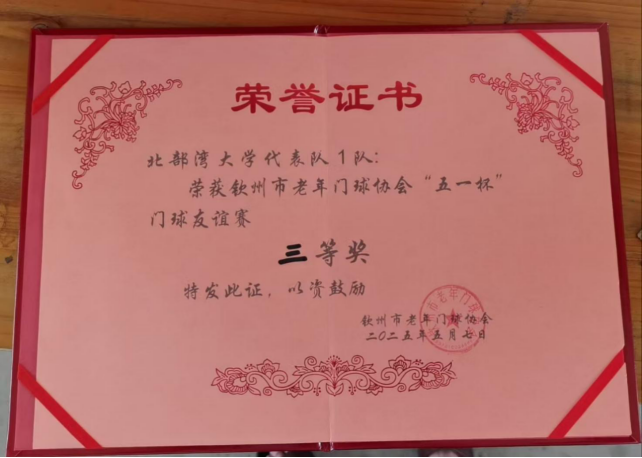 荣誉证书
北部湾大学代表队1队:
荣获钦州市老年门球协会“五一杯”
门球友谊赛
三等奖
特发此证，以资鼓励
钦州市老年门球协会
二〇二五年五月七日